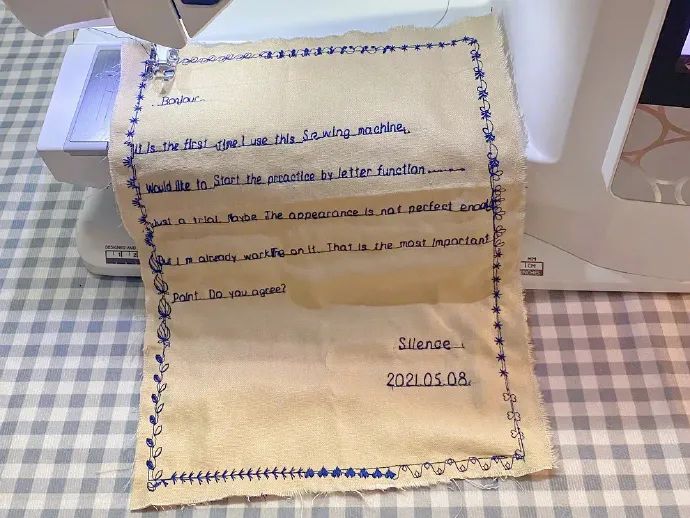 Bonjour
It is the first time I use this Sewing machine,
I would like to Start the practice by letter function
Just a trial. Maybe The appearance is not perfect enough
But I'm already working on it. That is the most important
Point. Do you agree?
Silence
2021.05.08.
DESIGNED AND
MM
1CM